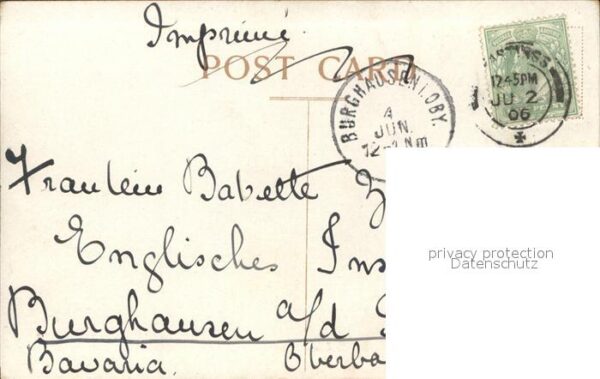 Imprimé
POST CARD
BURGHAUSEN I. OBY.
4
JUN.
12-1 Nm
HASTINGS
12.45PM
JU 2
06
Fraulein Babette
Englisches Ins
Burghausen a/d
Bavaria. Oberba
privacy protection
Datenschutz